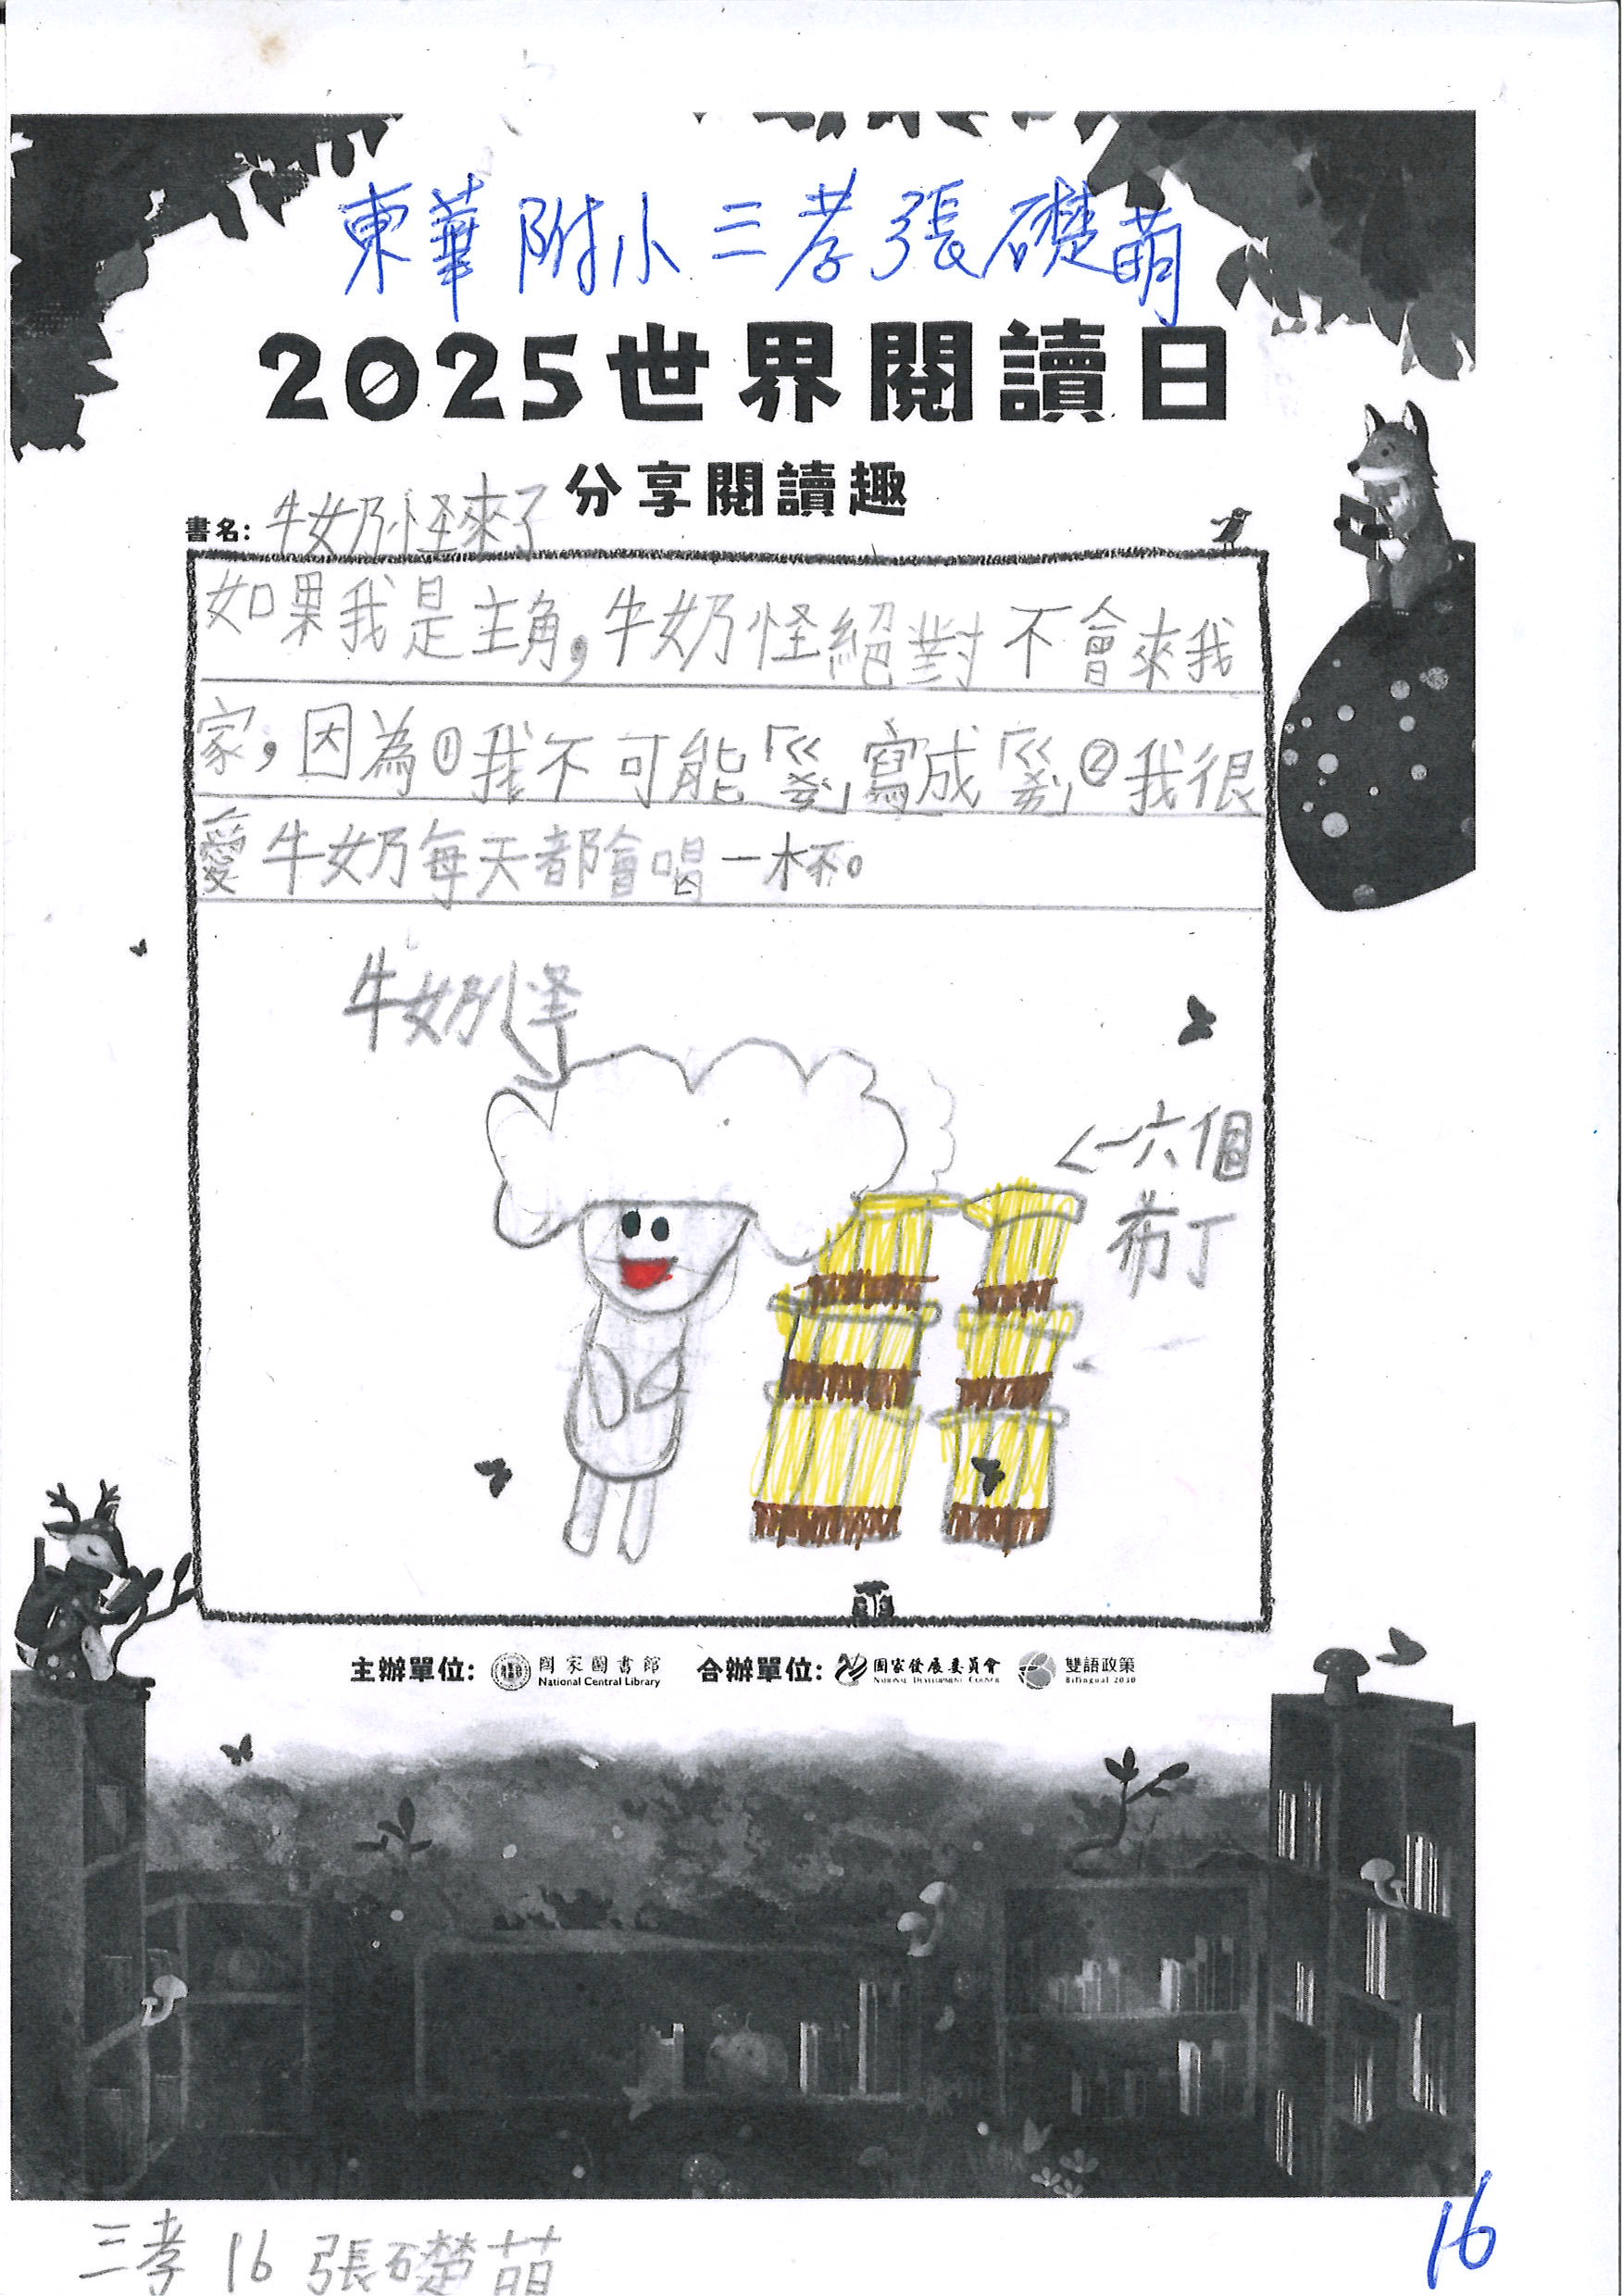 東華附小三孝張礎萌
2025世界閱讀日
分享閱讀趣
書名: 牛奶怪來了
如果我是主角,牛奶怪絕對不會來我
家,因為①我不可能「巛 寫成「巛 」②我很
愛牛奶每天都會喝一杯。
牛奶怪
←六個
布丁
主辦單位: 國家圖書館 National Central Library 合辦單位: 國家發展委員會 NATIONAL DEVELOPMENT COUNCIL 雙語政策 Bilingual 2030
三孝 16 張礎萌
16